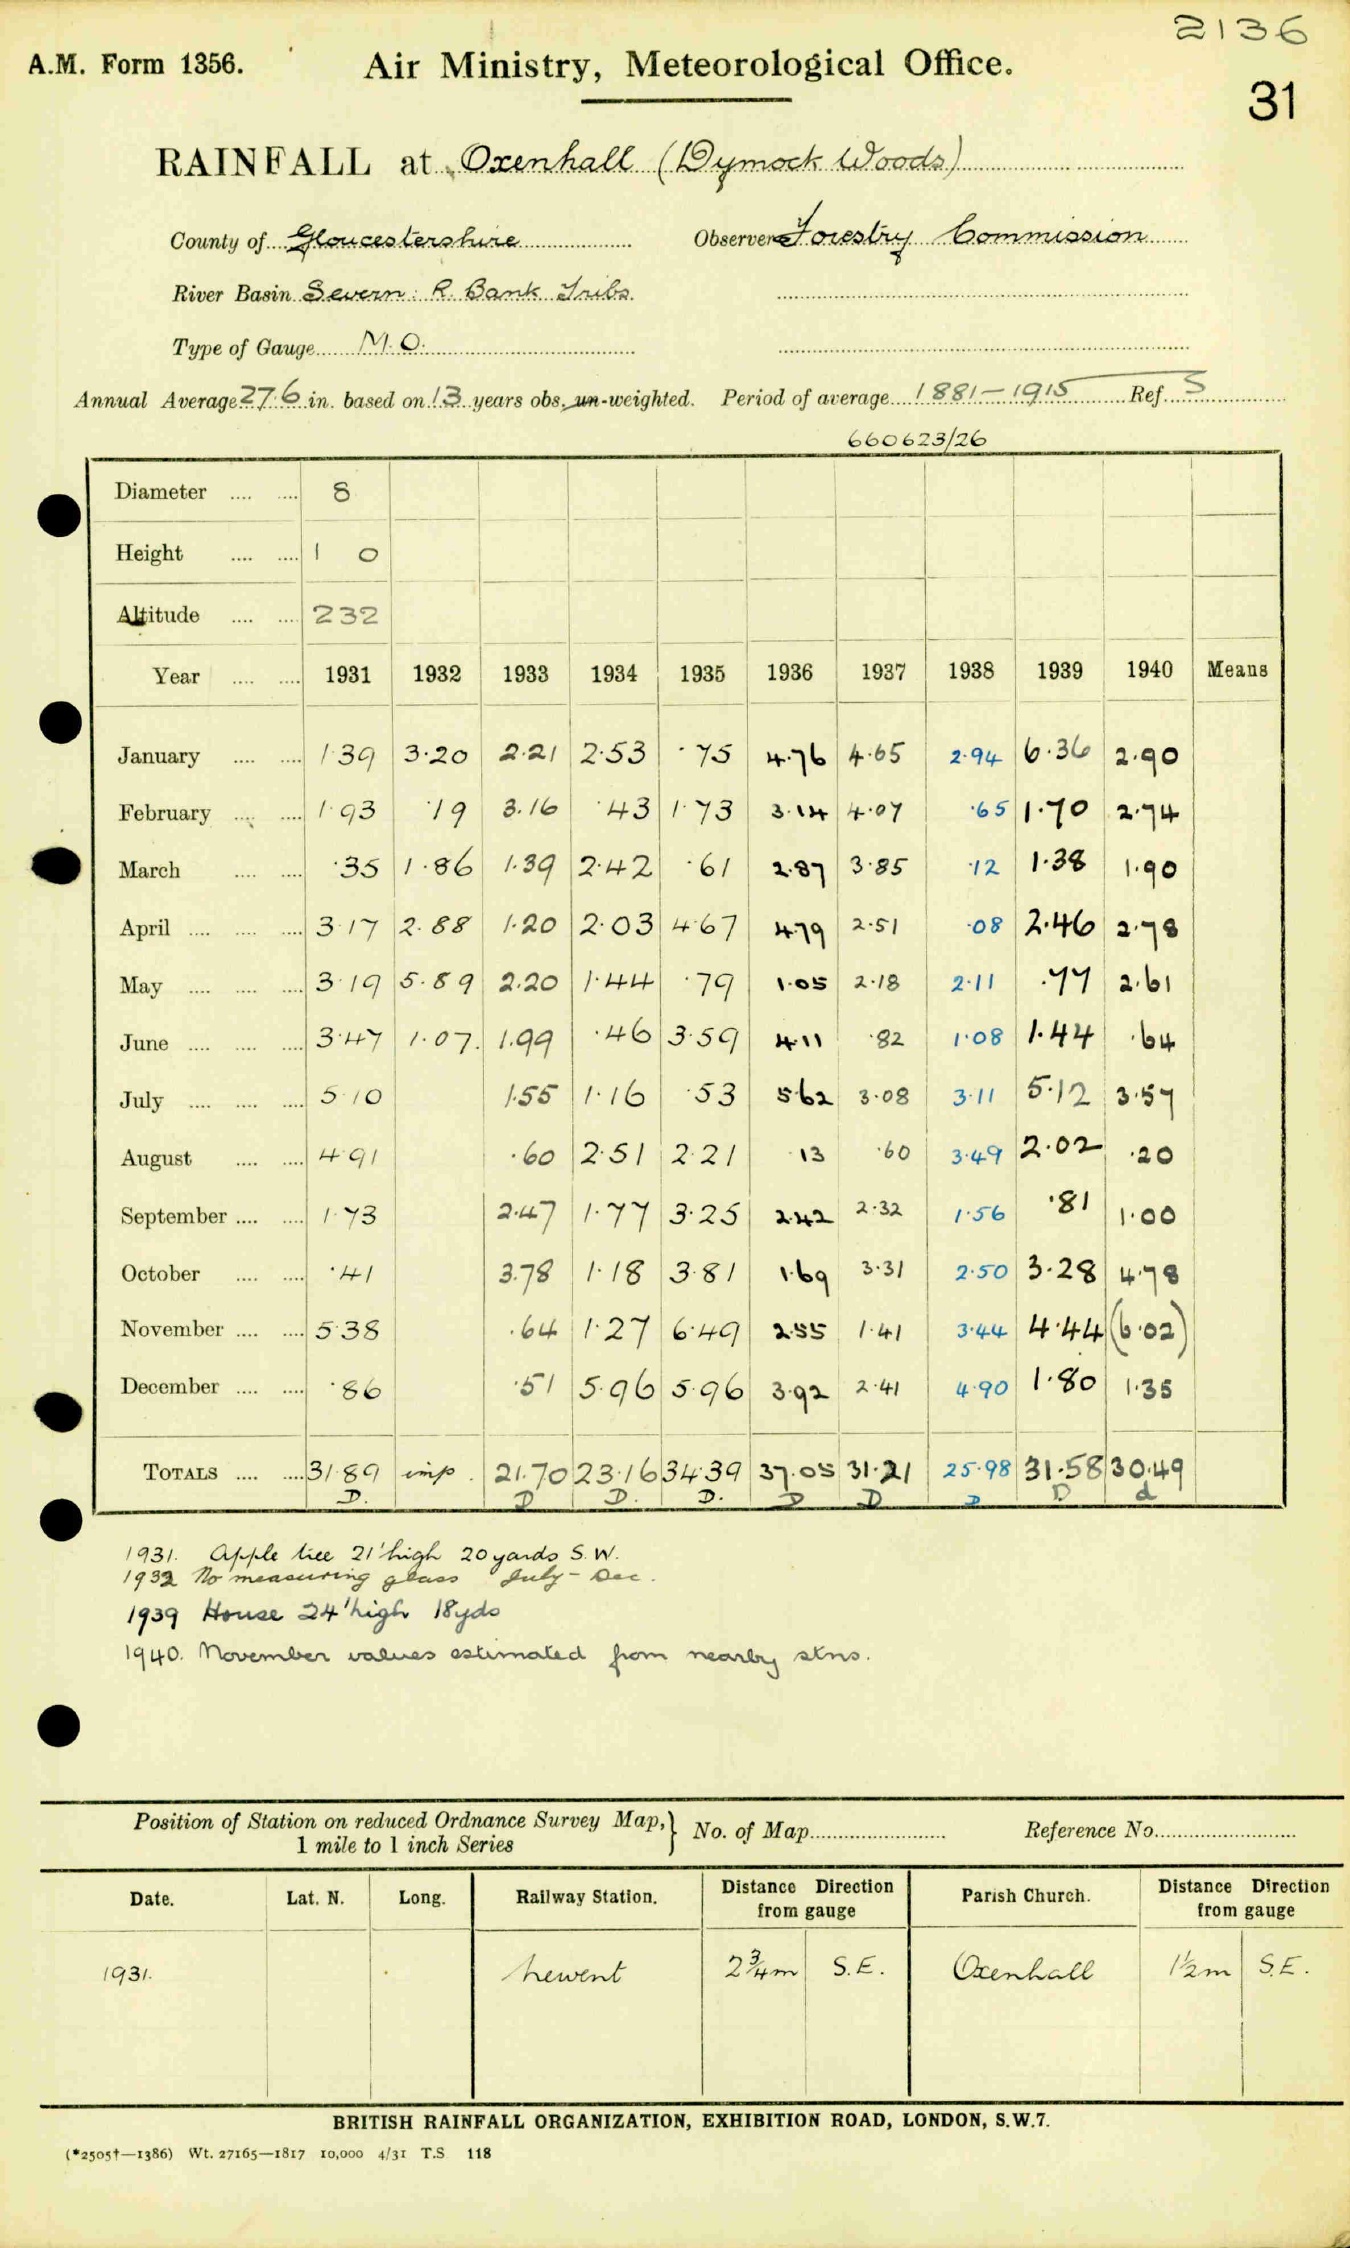 2136
A.M. Form 1356. Air Ministry, Meteorological Office.
31
RAINFALL at Oxenhall (Dymock Woods)
County of Gloucestershire Observer Forestry Commission
River Basin Severn: R. Bank Tribs
Type of Gauge M.O.
Annual Average 27.6 in. based on 13 years obs., un-weighted. Period of average 1881-1915 Ref. S
660623/26
Diameter 8
Height 1 0
Altitude 232
Year 1931 1932 1933 1934 1935 1936 1937 1938 1939 1940 Means
January 1.39 3.20 2.21 2.53 .75 4.76 4.65 2.94 6.36 2.90
February 1.93 .19 3.16 .43 1.73 3.14 4.07 .65 1.70 2.74
March .35 1.86 1.39 2.42 .61 2.87 3.85 .12 1.38 1.90
April 3.17 2.88 1.20 2.03 4.67 4.79 2.51 .08 2.46 2.78
May 3.19 5.89 2.20 1.44 .79 1.05 2.18 2.11 .77 2.61
June 3.47 1.07. 1.99 .46 3.59 4.11 .82 1.08 1.44 .64
July 5.10 1.55 1.16 .53 5.62 3.08 3.11 5.12 3.57
August 4.91 .60 2.51 2.21 .13 .60 3.49 2.02 .20
September 1.73 2.47 1.77 3.25 2.42 2.32 1.56 .81 1.00
October .41 3.78 1.18 3.81 1.69 3.31 2.50 3.28 4.78
November 5.38 .64 1.27 6.49 2.55 1.41 3.44 4.44 (6.02)
December .86 .51 5.96 5.96 3.92 2.41 4.90 1.80 1.35
TOTALS 31.89 imp. 21.70 23.16 34.39 37.05 31.21 25.98 31.58 30.49
D. D D. D. D D D D d
1931. Apple tree 21' high 20 yards S.W.
1932 No measuring glass July - Dec.
1939 House 24' high 18yds
1940. November values estimated from nearby stns.
Position of Station on reduced Ordnance Survey Map, 1 mile to 1 inch Series } No. of Map Reference No.
Date. Lat. N. Long. Railway Station. Distance Direction from gauge Parish Church. Distance Direction from gauge
1931. Newent 2¾m S.E. Oxenhall 1½m S.E.
BRITISH RAINFALL ORGANIZATION, EXHIBITION ROAD, LONDON, S.W.7.
(*2505†—1386) Wt. 27165—1817 10,000 4/31 T.S 118